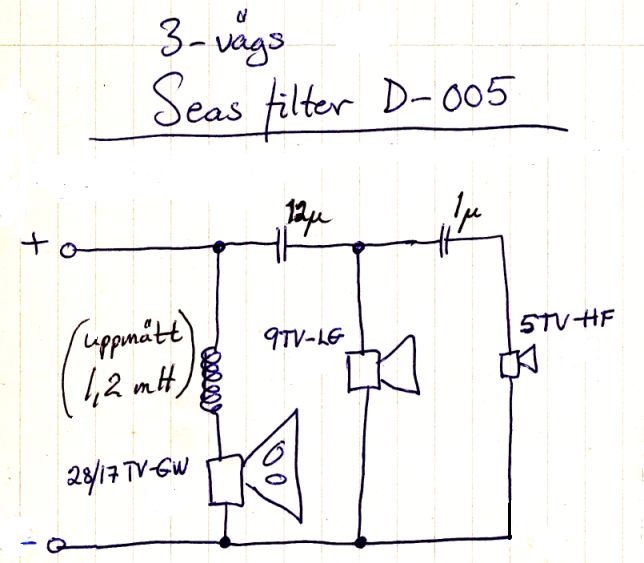 3-vägs
Seas filter D-005
12µ
1µ
+
(uppmätt
1,2 mH)
9TV-LG
5TV-HF
28/17 TV-GW
-